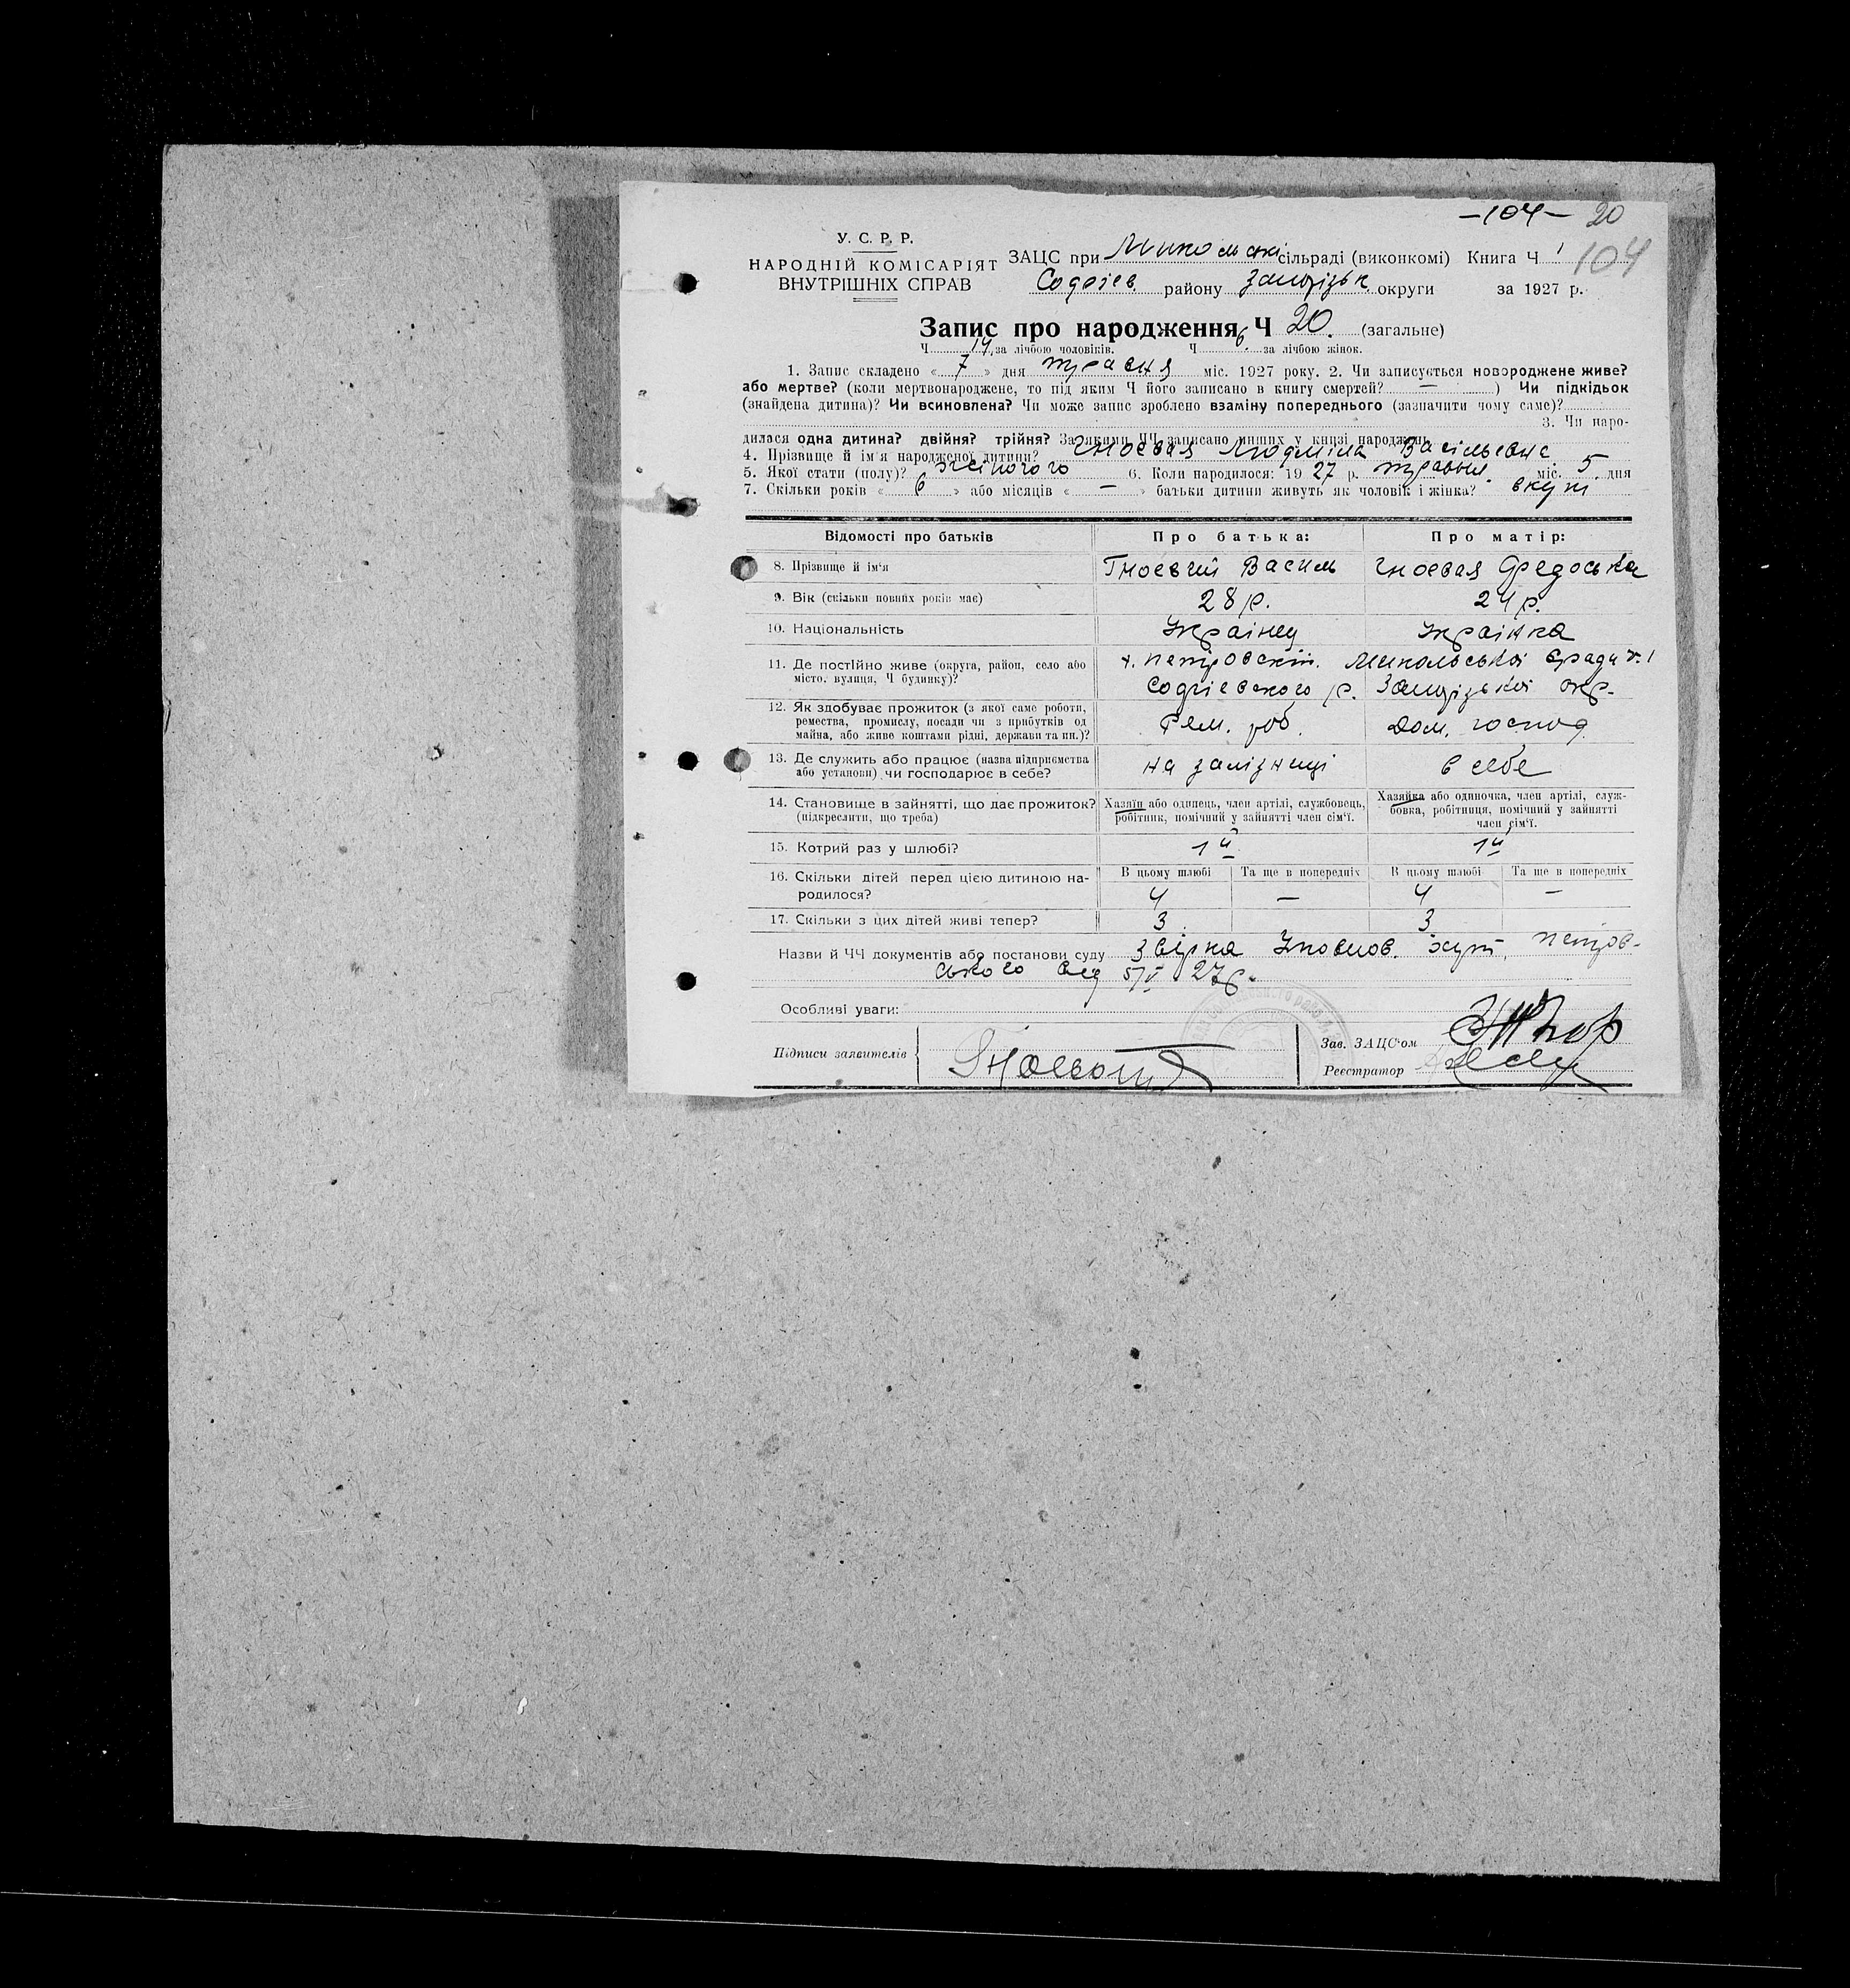 –104– 20
104
У. С. Р. Р.
НАРОДНІЙ КОМІСАРІЯТ
ВНУТРІШНІХ СПРАВ
ЗАЦС при Микольскі сільраді (виконкомі) Книга Ч 1
Софіев. району Запорізьк. округи за 1927 р.
Запис про народження Ч 20. (загальне)
Ч 14, за лічбою чоловіків. Ч 6. за лічбою жінок.
1. Запис складено «7» дня травня міс. 1927 року. 2. Чи записується новороджене живе?
або мертве? (коли мертвонароджене, то під яким Ч його записано в книгу смертей? —) Чи підкідьок
(знайдена дитина)? Чи всиновлена? Чи може запис зроблено взаміну попереднього (зазначити чому саме)?
3. Чи наро-
дилася одна дитина? двійня? трійня? За якими ЧЧ записано инших у книзі народжень
4. Прізвище й ім'я народженої дитини? Гноевая Людміла Васільевна
5. Якої стати (полу)? жіночого 6. Коли народилося: 1927 р. травня міс. 5 дня
7. Скільки років «6» або місяців «—» батьки дитини живуть як чоловік і жінка? вкупі
Відомості про батьків Про батька: Про матір:
8. Прізвище й ім'я Гноевий Василь Гноевая Федоська
9. Вік (скільки повних років має) 28 р. 24 р.
10. Національність Українец Українка
11. Де постійно живе (округа, район, село або х. Петровский. Микольської с/ради ч. 1
місто, вулиця, Ч будинку)? Софіевского р. Запорізької окр.
12. Як здобуває прожиток (з якої саме роботи,
ремества, промислу, посади чи з прибутків од Рем. роб. Дом. господ.
майна, або живе коштами рідні, держави та ин.)?
13. Де служить або працює (назва підприємства на залізниці в себе
або установи) чи господарює в себе?
14. Становище в зайнятті, що дає прожиток? Хазяїн або одинець, член артілі, службовець, Хазяйка або одиночка, член артілі, служ-
(підкреслити, що треба) робітник, помічний у зайнятті член сім'ї. бовка, робітниця, помічний у зайнятті
член сім'ї.
15. Котрий раз у шлюбі? 1й 1й
16. Скільки дітей перед цією дитиною на- В цьому шлюбі Та ще в попередніх В цьому шлюбі Та ще в попередніх
родилося? 4 — 4 —
17. Скільки з цих дітей живі тепер? 3 3
Назви й ЧЧ документів або постанови суду Звірка Уповнов. хут. Петров-
ського від 5/V 27р.
Особливі уваги:
Підписи заявителів
Зав. ЗАЦС'ом
Реєстратор